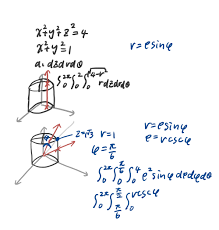 x²+y²+z²=4
x²+y²=1
r=ρsinφ
a. dzdrdθ
∫₀^2π ∫₀^2 ∫₀^√4-r² rdzdrdθ
z=√3 r=1
φ=π/6
r=ρsinφ
ρ=rcscφ
∫₀^2π ∫₀^π/6 ∫₀^4 ρ²sinφ dρdφdθ
∫₀^2π ∫_π/6^π/2 ∫₀^rcscφ